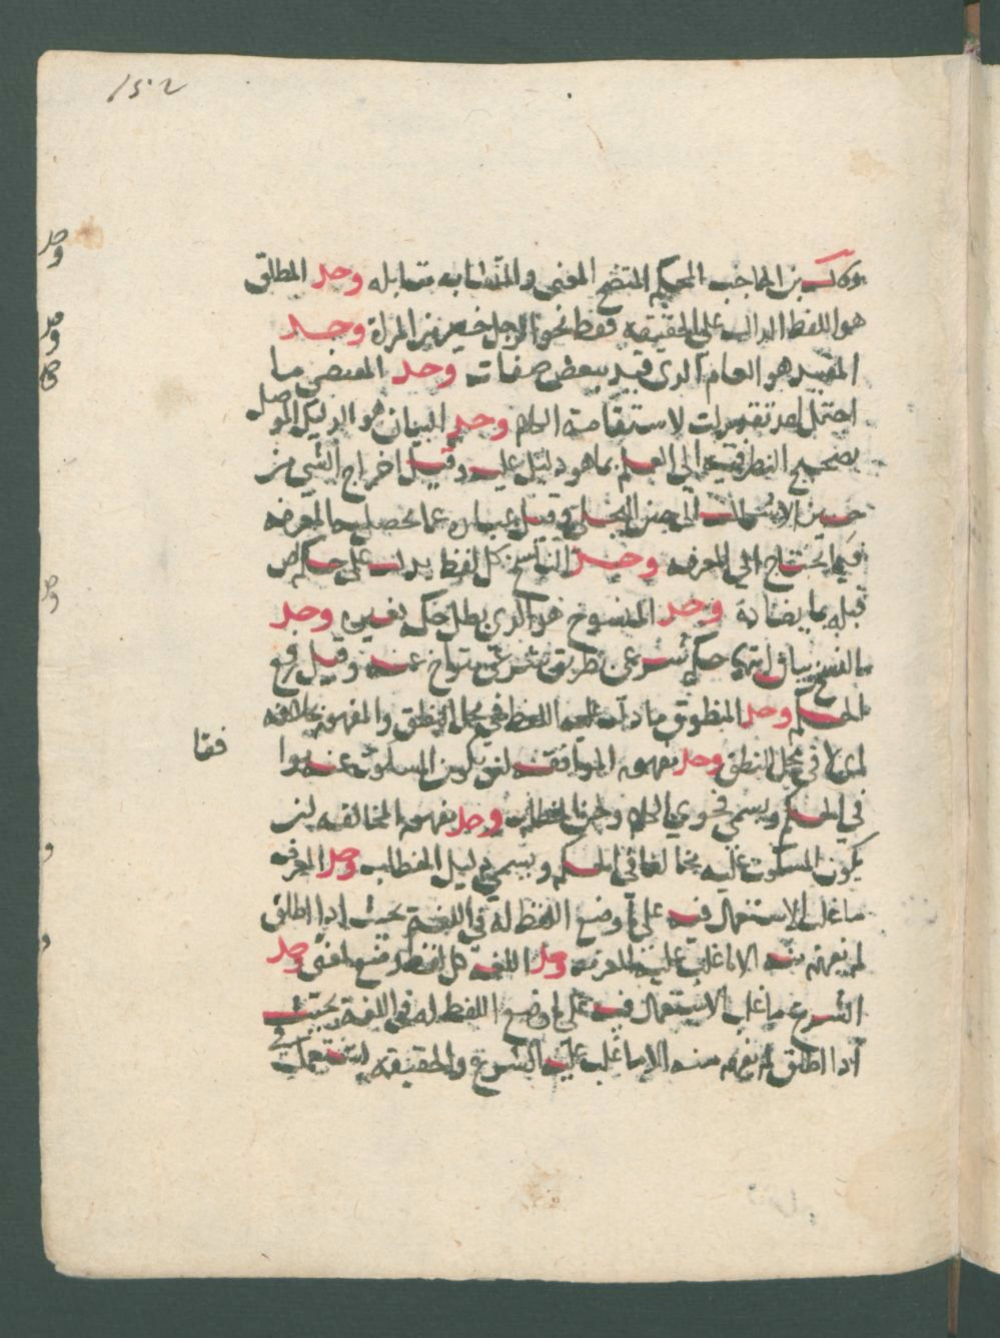 152
وقال بن الحاجب المحكم المتضح المعنى والمتشابه مقابله وحد المطلق
هو اللفظ الدال على الحقيقه فقط نحو الرجل خير من المراة وحد
المقيد هو العام الذي قيد ببعض صفات وحد المقتضي ما
احتمل احد تقديرات لاستقامة الكلام وحد البيان هو الدليل الموصل
بصحيح النظر فيه الى العلم بما هو دليل عليه وقيل اخراج الشي من
حيز الاشكال الى حيز التجلي وقيل عباره عما تحصل به المعرفه
فيما يحتاج الى المعرفه وحد الناسخ كل لفظ يدل على حكم
قبله بما يضاده وحد المنسوخ هو الذي بطل حكمه بغيره وحد
النسخ بيان انتها حكم شرعي بطريق شرعي متراخ عنه وقيل رفع
الحكم وحد المنطوق ما دل عليه اللفظ في محل النطق والمفهوم بخلافه
اي لا في محل النطق وحد مفهوم الموافقه ان يكون المسكوت عنه موا
فقا
في الحكم ويسمى فحوى الكلام ولحن الخطاب وحد مفهوم المخالفه ان
يكون المسكوت عنه مخالفا في الحكم ويسمى دليل الخطاب وحد العرف
ما غلب الاستعمال فيه على ما وضع اللفظ له في اللغه بحيث اذا اطلق
لم يفهم منه الا ما غلب عليه العرف وحد اللغه كل لفظ وضع لمعنى وحد
الشرع ما غلب الاستعمال فيه على ما وضع اللفظ له في اللغه بحيث
اذا اطلق لم يفهم منه الا ما غلب عليه الشرع والحقيقه استعمال